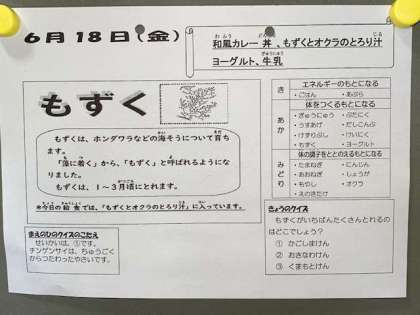 6月18日(金)
和風カレー丼、もずくとオクラのとろり汁
ヨーグルト、牛乳
もずく
もずくは、ホンダワラなどの海そうについて育ち
ます。
「藻に着く」から、「もずく」と呼ばれるようにな
りました。
もずくは、1〜3月頃にとれます。
※今日の給食では、「もずくとオクラのとろり汁」に入っています。
き
エネルギーのもとになる
・ごはん ・あぶら
あか
体をつくるもとになる
・ぎゅうにゅう ・ぶたにく
・うすあげ ・だしこんぶ
・けずりぶし ・けいにく
・もずく ・ヨーグルト
みどり
体の調子をととのえるもとになる
・たまねぎ ・にんじん
・おおねぎ ・しょうが
・もやし ・オクラ
・えのきたけ
まえのひのクイズのこたえ
せいかいは、①です。
チンゲンサイは、ちゅうごく
からつたわったやさいです。
きょうのクイズ
もずくがいちばんたくさんとれるの
はどこでしょう?
① かごしまけん
② おきなわけん
③ くまもとけん